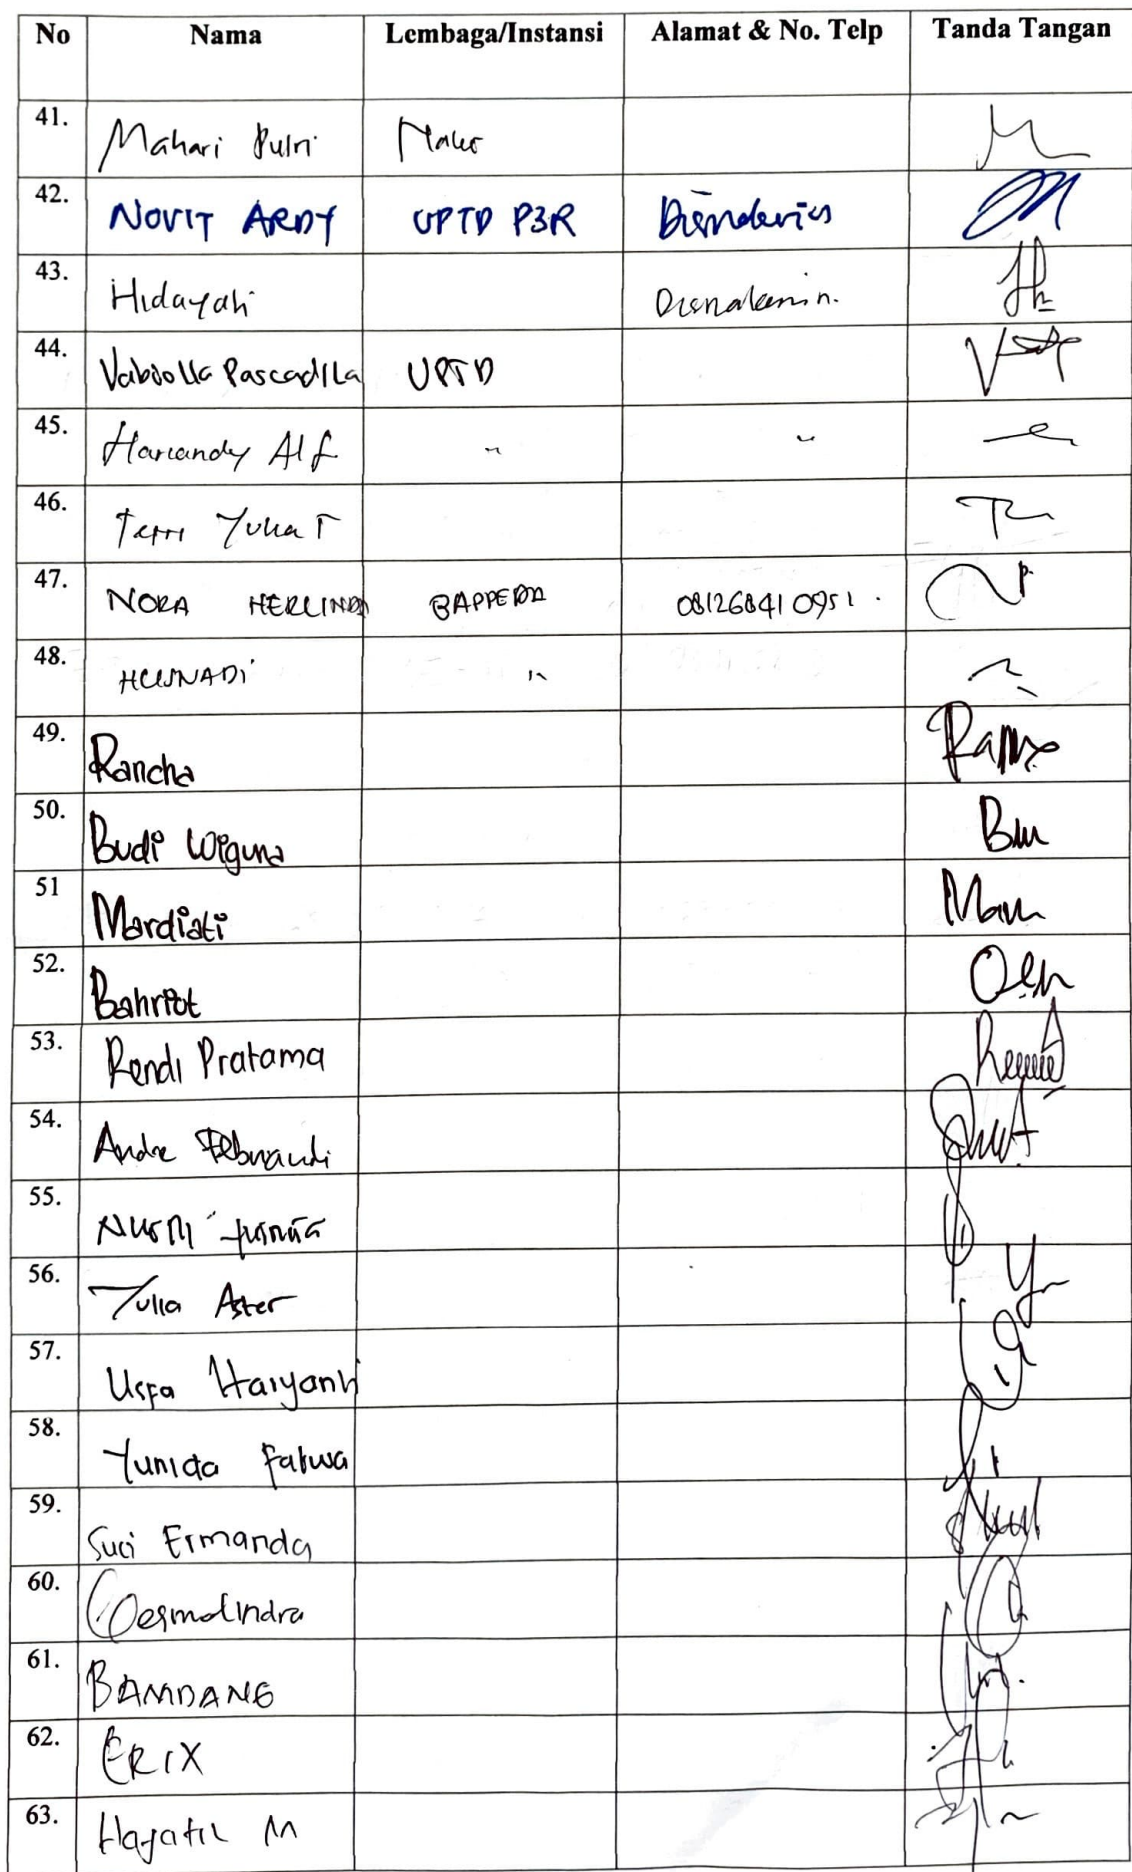 No Nama Lembaga/Instansi Alamat & No. Telp Tanda Tangan
41. Mahari Putri Naker
42. NOVIT ARDY UPTD P3R
43. Hidayati
44. Pascadilla UPTD
45. Hariandy Alf " "
46. Yulia T
47. NORA HERLINDA BAPPEDA 081268410951.
48. HUSNADI "
49. Rancha
50. Budi Wiguna
51 Mardiati
52. Bahriot
53. Rendi Pratama
54. Andre Febriandi
55.
56. Yulia Aster
57. Usfa Haryanti
58. Yunida Fatwa
59. Suci Ermanda
60. Desmalindra
61. BAMBANG
62. ERIX
63. Hayatil M